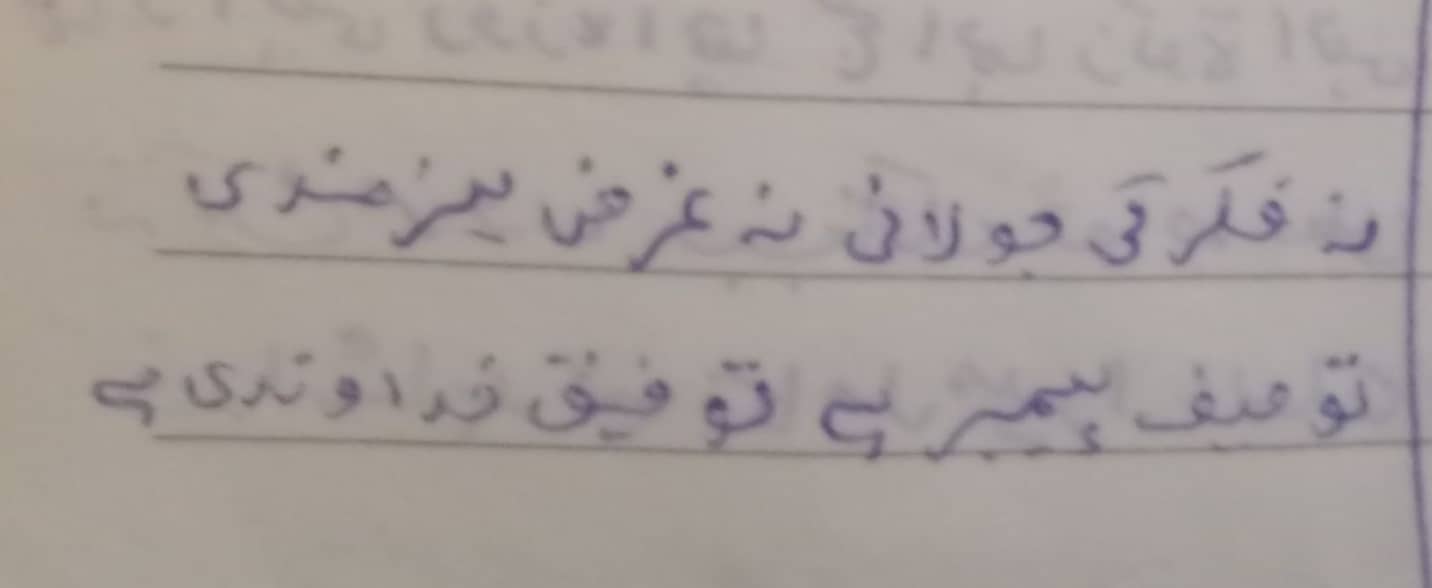 نہ فکر کی جولانی نہ عرض ہنر مندی
توصیف پیمبر ہے توفیق خداوندی ہے